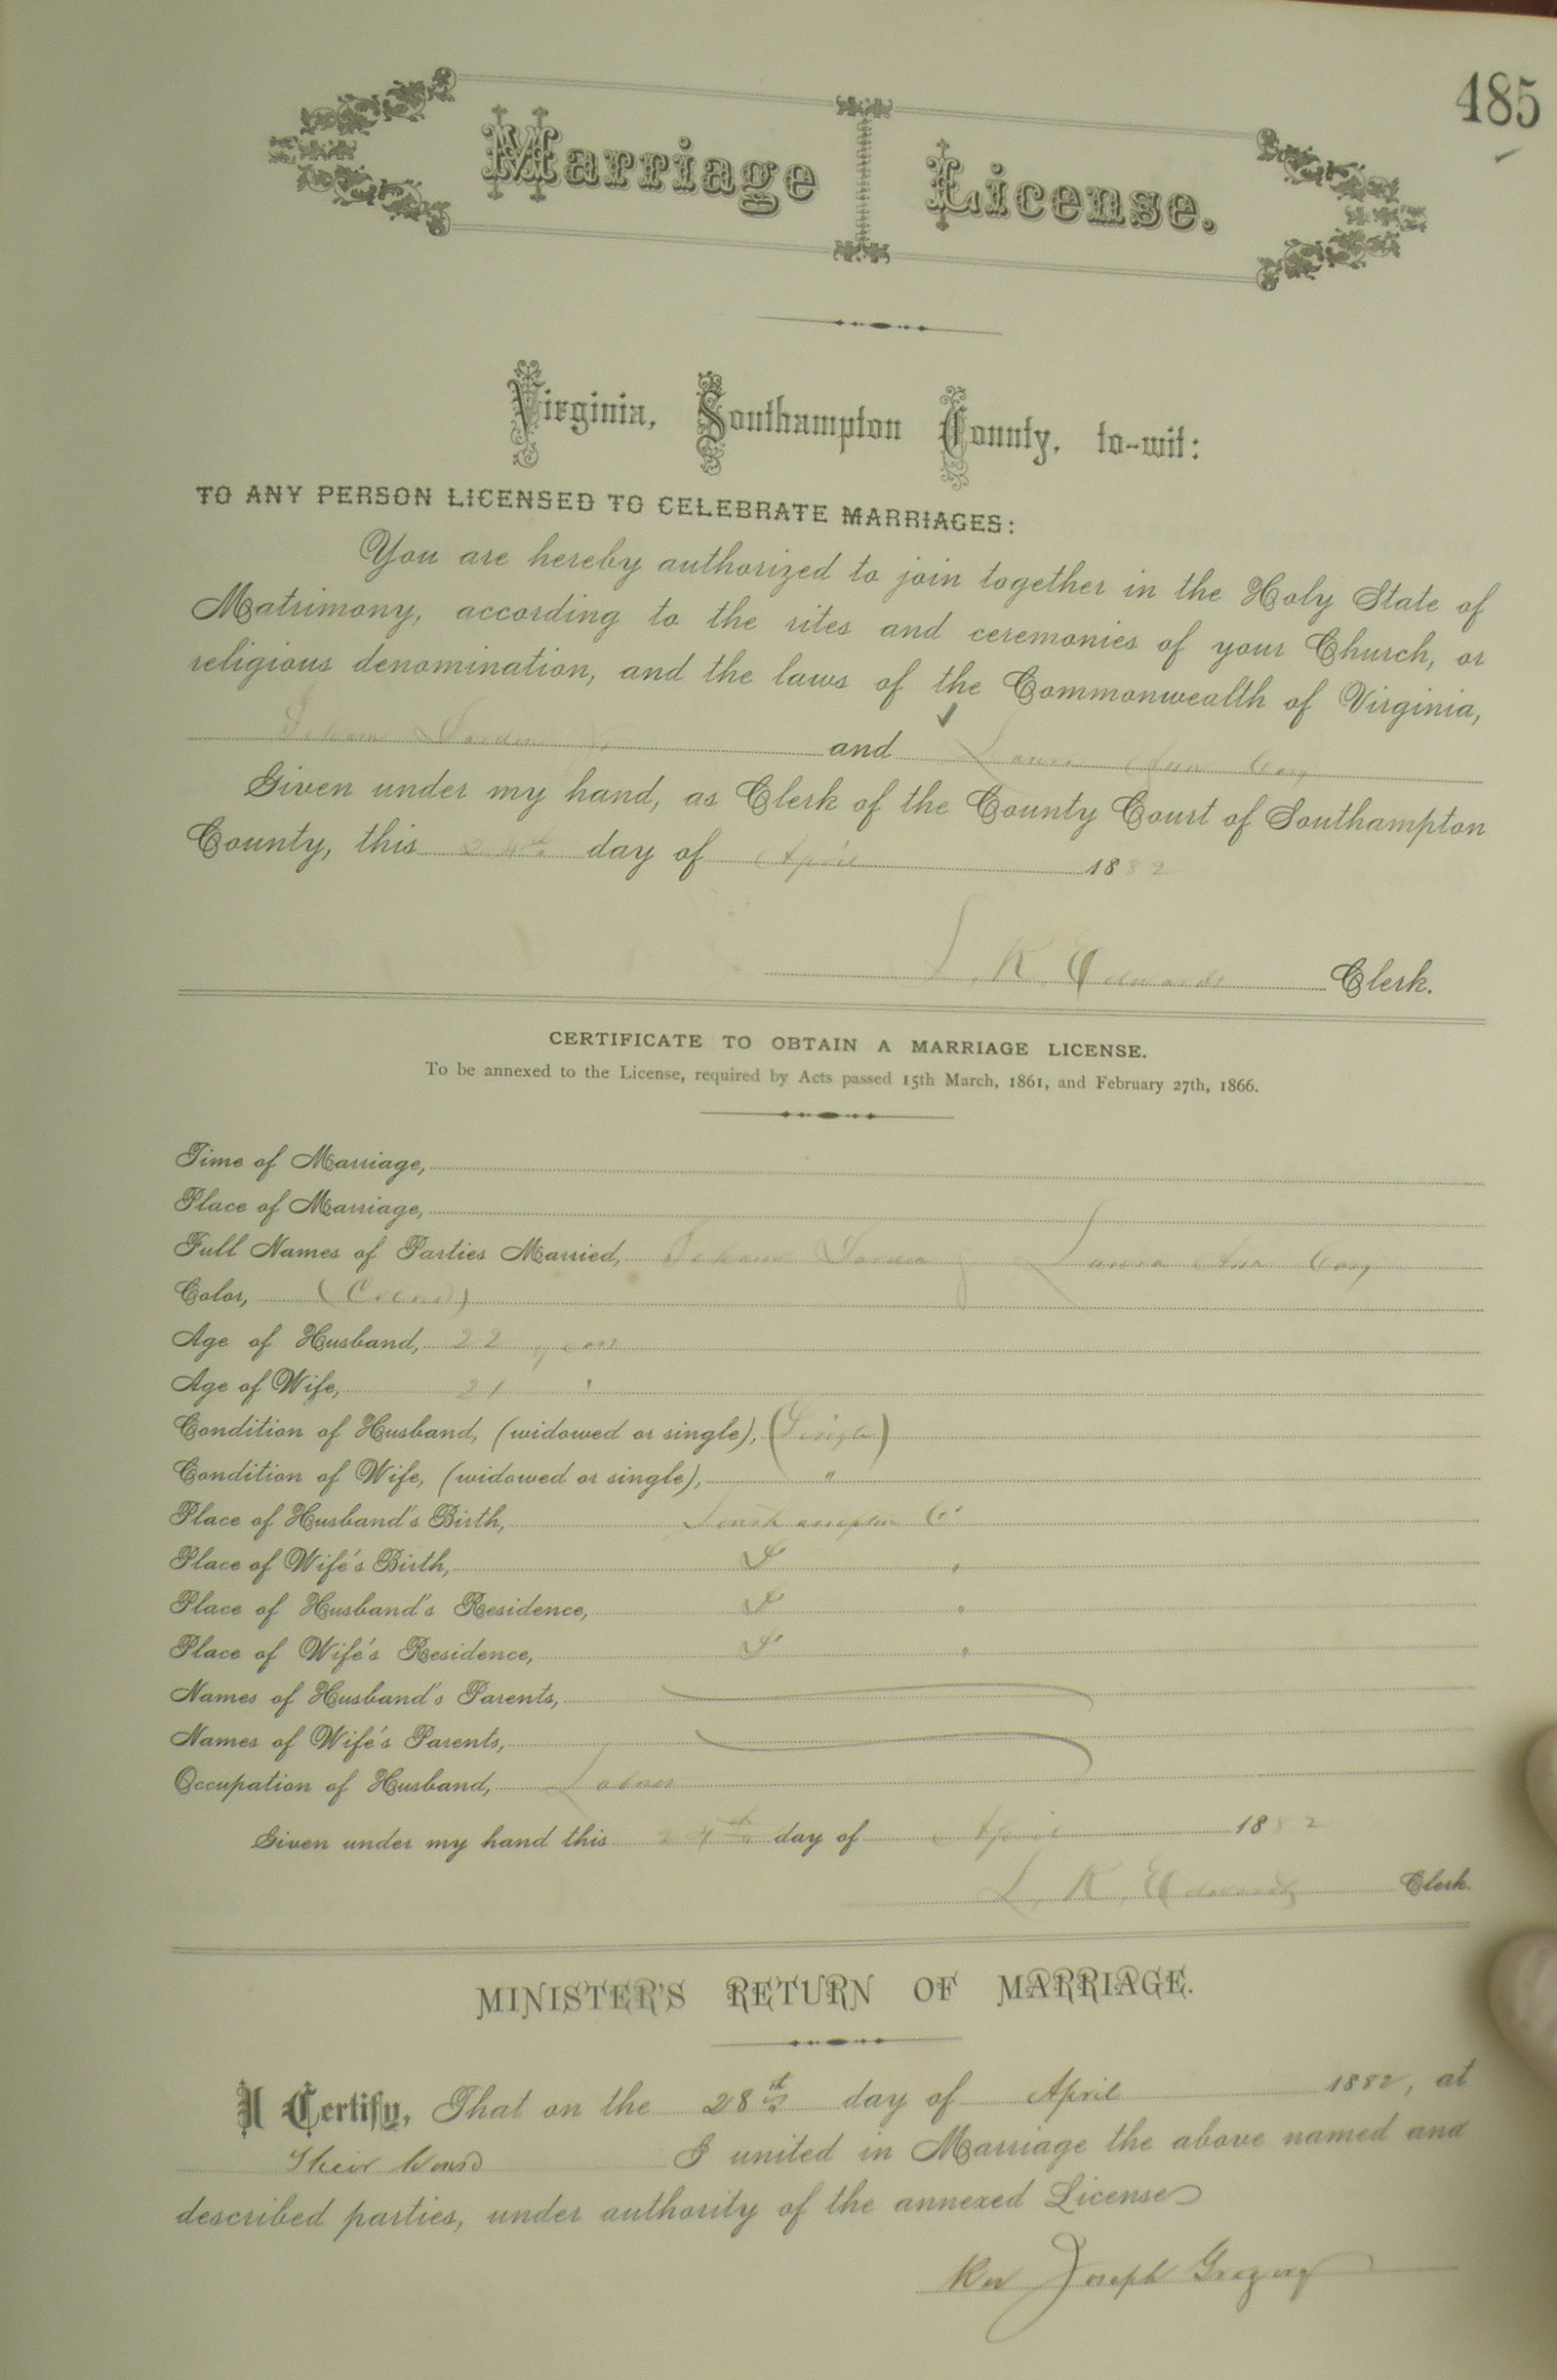 485
Marriage License.
Virginia, Southampton County, to-wit:
TO ANY PERSON LICENSED TO CELEBRATE MARRIAGES:
You are hereby authorized to join together in the Holy State of
Matrimony, according to the rites and ceremonies of your Church, or
religious denomination, and the laws of the Commonwealth of Virginia,
and Laura Ann
Given under my hand, as Clerk of the County Court of Southampton
County, this 24th day of April 1882
L. R. Edwards Clerk.
CERTIFICATE TO OBTAIN A MARRIAGE LICENSE.
To be annexed to the License, required by Acts passed 15th March, 1861, and February 27th, 1866.
Time of Marriage,
Place of Marriage,
Full Names of Parties Married, Laura Ann
Color,
Age of Husband, 22 years
Age of Wife, 21 "
Condition of Husband, (widowed or single), (Single)
Condition of Wife, (widowed or single), "
Place of Husband's Birth, Southampton Co
Place of Wife's Birth, "
Place of Husband's Residence, "
Place of Wife's Residence, "
Names of Husband's Parents,
Names of Wife's Parents,
Occupation of Husband, Laborer
Given under my hand this 24th day of April 1882
L. R. Edwards Clerk.
MINISTER'S RETURN OF MARRIAGE.
I Certify, That on the 28th day of April 1882, at
Their I united in Marriage the above named and
described parties, under authority of the annexed License
Rev Joseph Gregory